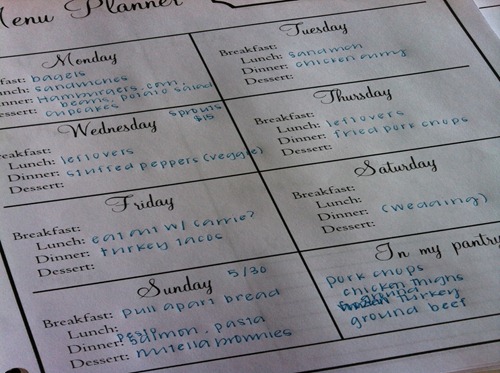 Menu Planner
Monday
Breakfast: bagels
Lunch: sandwiches
Dinner: Hamburgers, corn,
beans, potato salad
Dessert: cupcakes
Tuesday
Breakfast:
Lunch: sandwich
Dinner: chicken curry
Dessert:
sprouts
$15
Wednesday
Breakfast:
Lunch: leftovers
Dinner: stuffed peppers (veggie)
Dessert:
Thursday
Breakfast:
Lunch: leftovers
Dinner: fried pork chops
Dessert:
Friday
Breakfast:
Lunch: eat out w/ carrie?
Dinner: turkey tacos
Dessert:
Saturday
Breakfast:
Lunch:
Dinner: (wedding)
Dessert:
Sunday 5/30
Breakfast: pull apart bread
Lunch:
Dinner: salmon, pasta
Dessert: nutella brownies
In my pantry
pork chops
chicken thighs
turkey
ground beef